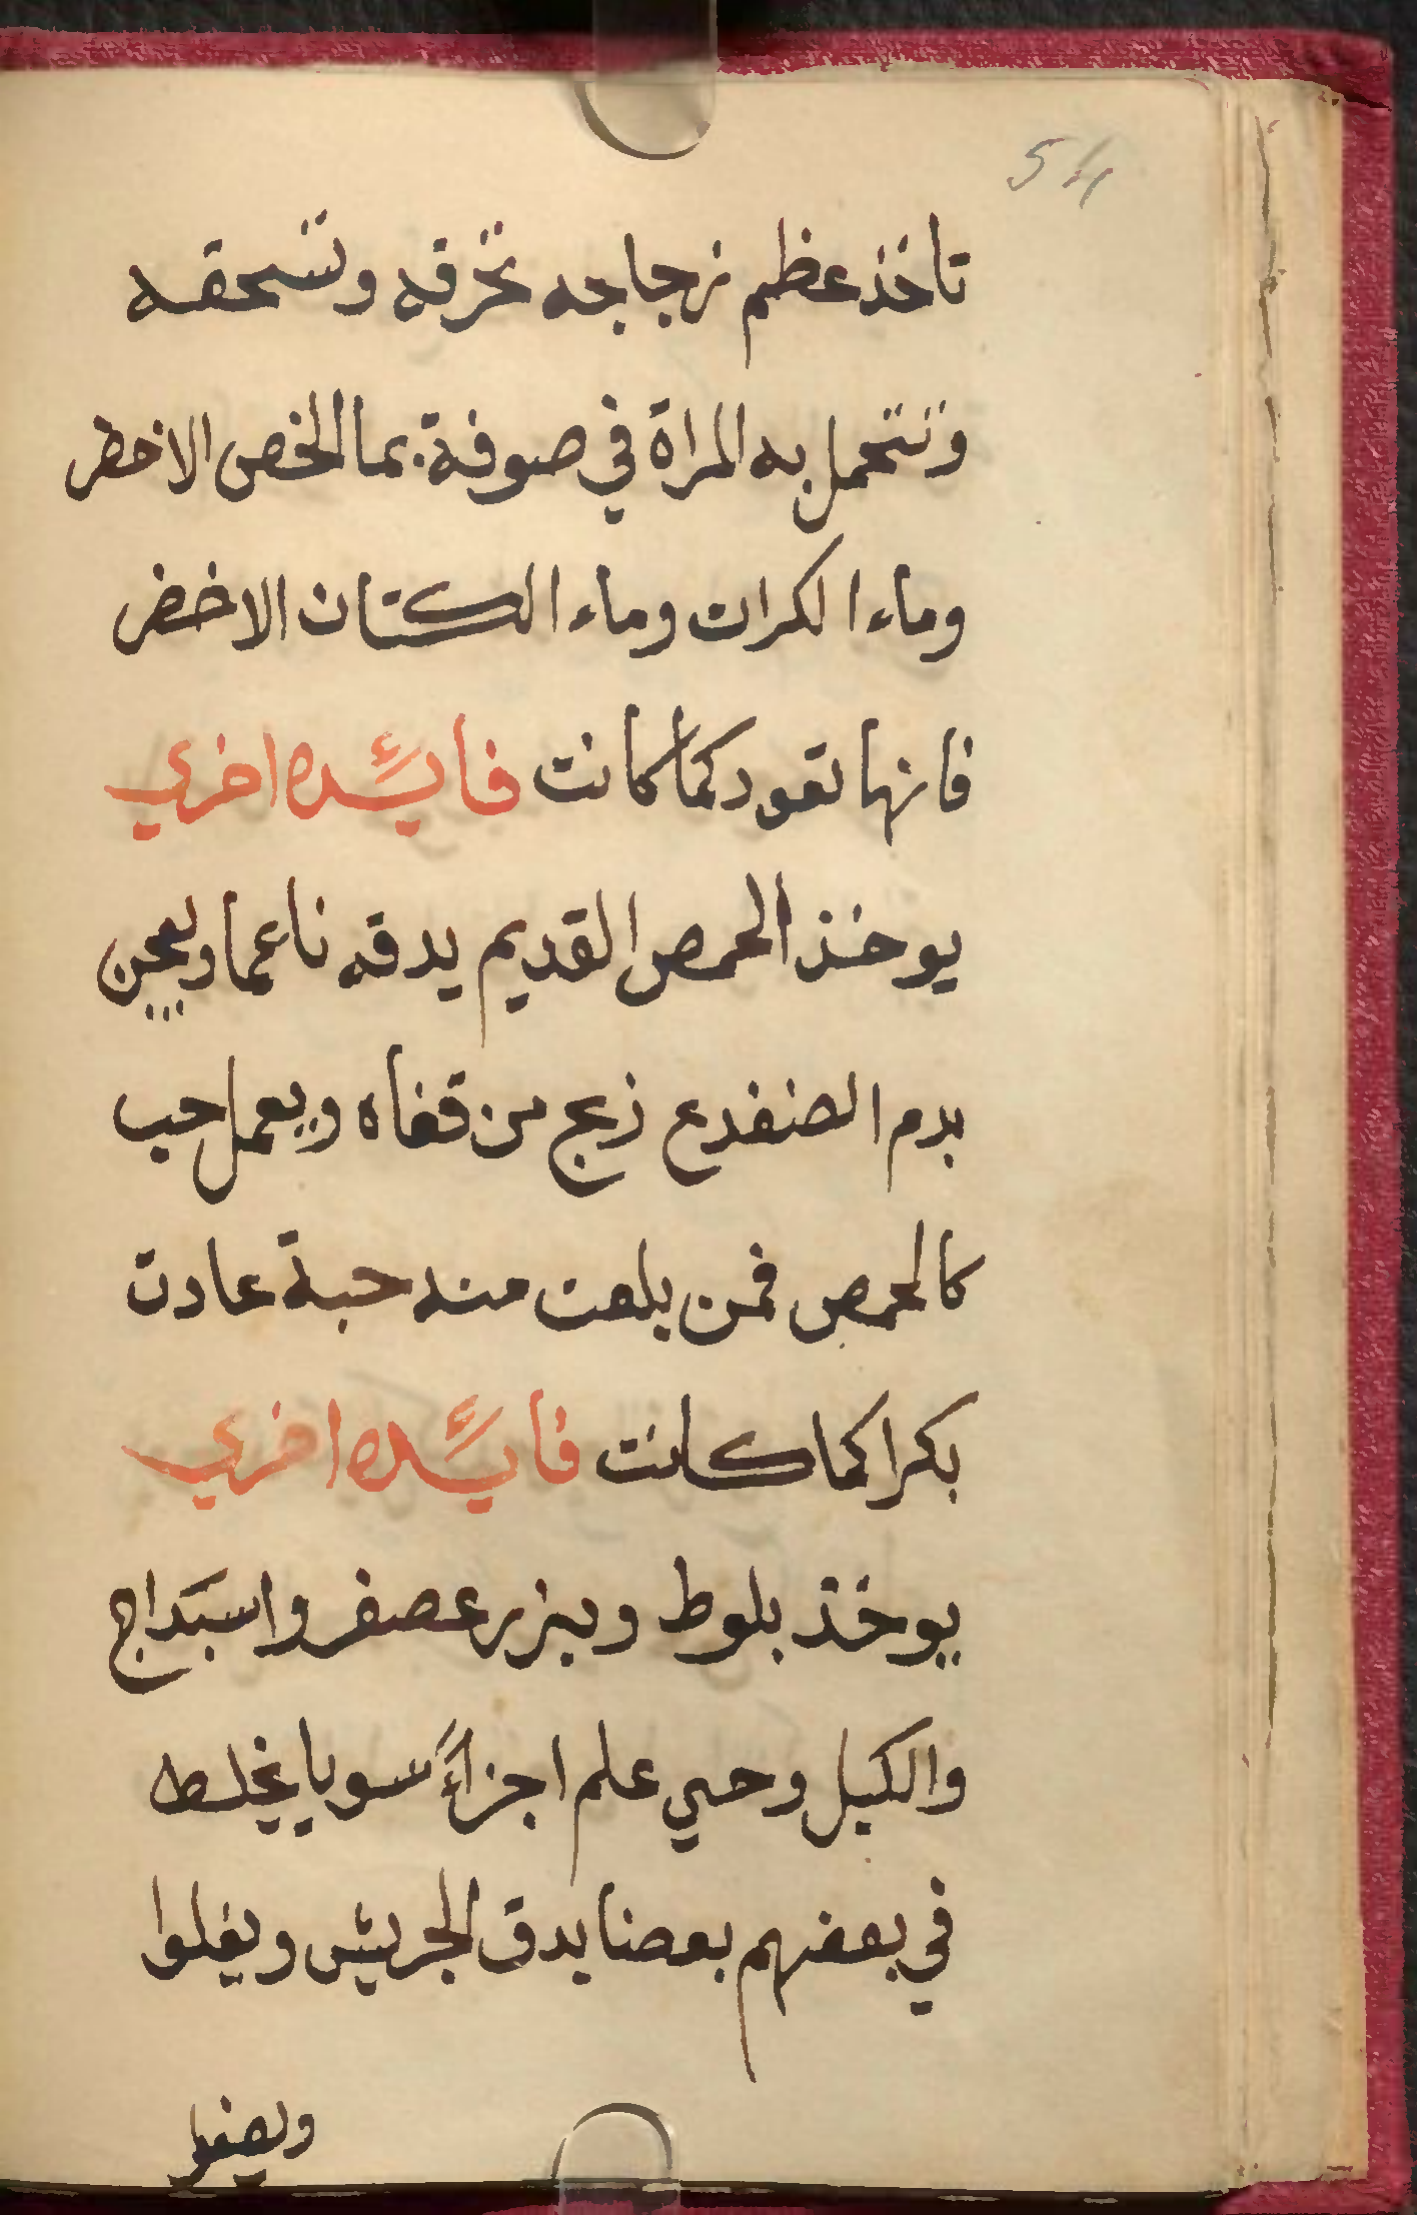 54
تاخذ عظم زجاجه تحرقه وتسحقه
وتتحمل به المراة في صوفة بما الخص الاخظر
وماء الكرات وماء الكتان الاخضر
فانها تعود كما كانت فايئده اخري
يوخذ الحمص القديم يدقه ناعما ويعجن
بدم الضفدع ذبح من قفاه ويعمل حب
كالحمص فمن بلعت منه حبة عادت
بكرا كما كانت فايئده اخري
يوخذ بلوط وبزر عصفر واسبداج
والكبل وحي علم اجزاءً سويا يخلطه
في بعضهم بعضا يدق الجريش ويغلوا
ويصفوا